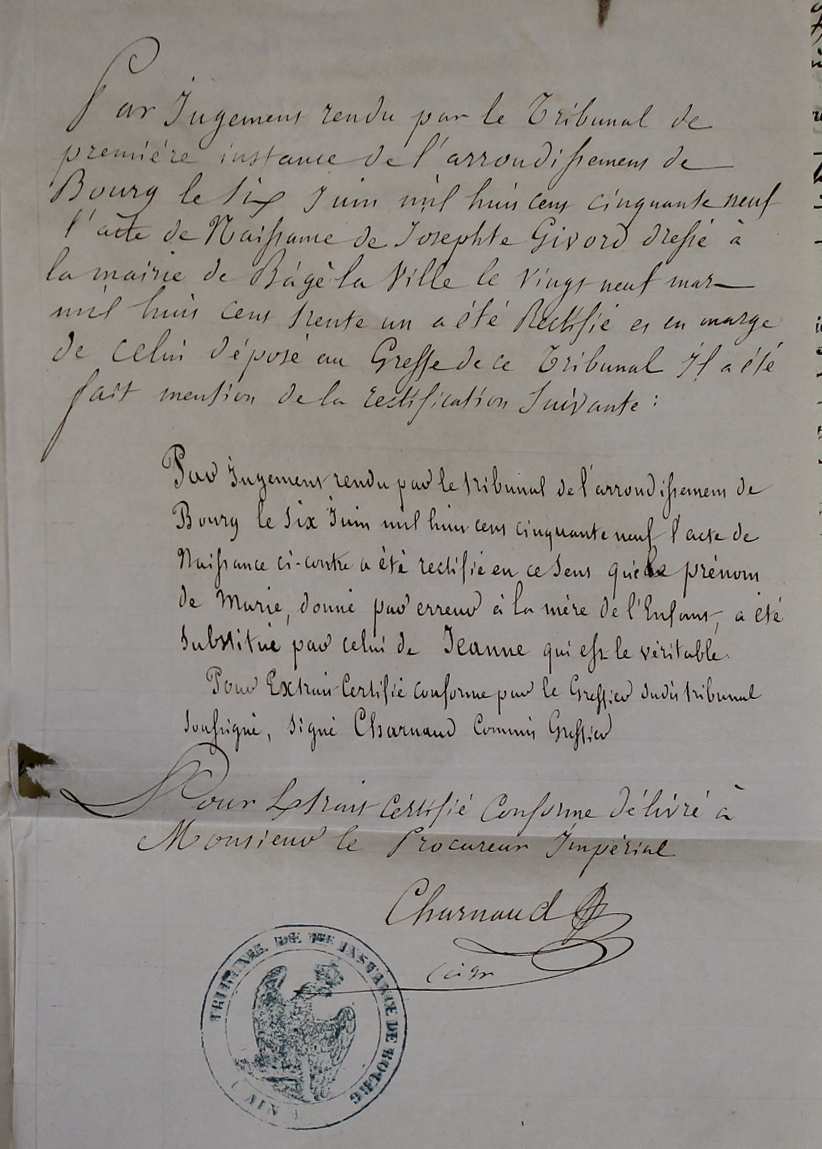 Par Jugement rendu par le Tribunal de
première instance de l'arrondissement de
Bourg le six Juin mil huit cent cinquante neuf
l'acte de Naissance de Josephte Givord dressé à
la mairie de Bâgé la Ville le vingt neuf mars
mil huit cent trente un a été Rectifié et en marge
de celui déposé au Greffe de ce Tribunal il a été
fait mention de la rectification suivante :
Par Jugement rendu par le tribunal de l'arrondissement de
Bourg le six Juin mil huit cent cinquante neuf l'acte de
Naissance ci-contre a été rectifié en ce sens que le prénom
de Marie, donné par erreur à la mère de l'Enfant, a été
substitué par celui de Jeanne qui est le véritable.
Pour Extrait Certifié conforme par le Greffier dudit tribunal
soussigné, signé Charnaud Commis Greffier
Pour Extrait Certifié Conforme délivré à
Monsieur le Procureur Impérial
Charnaud
TRIBUNAL DE 1RE INSTANCE DE BOURG
( AIN )